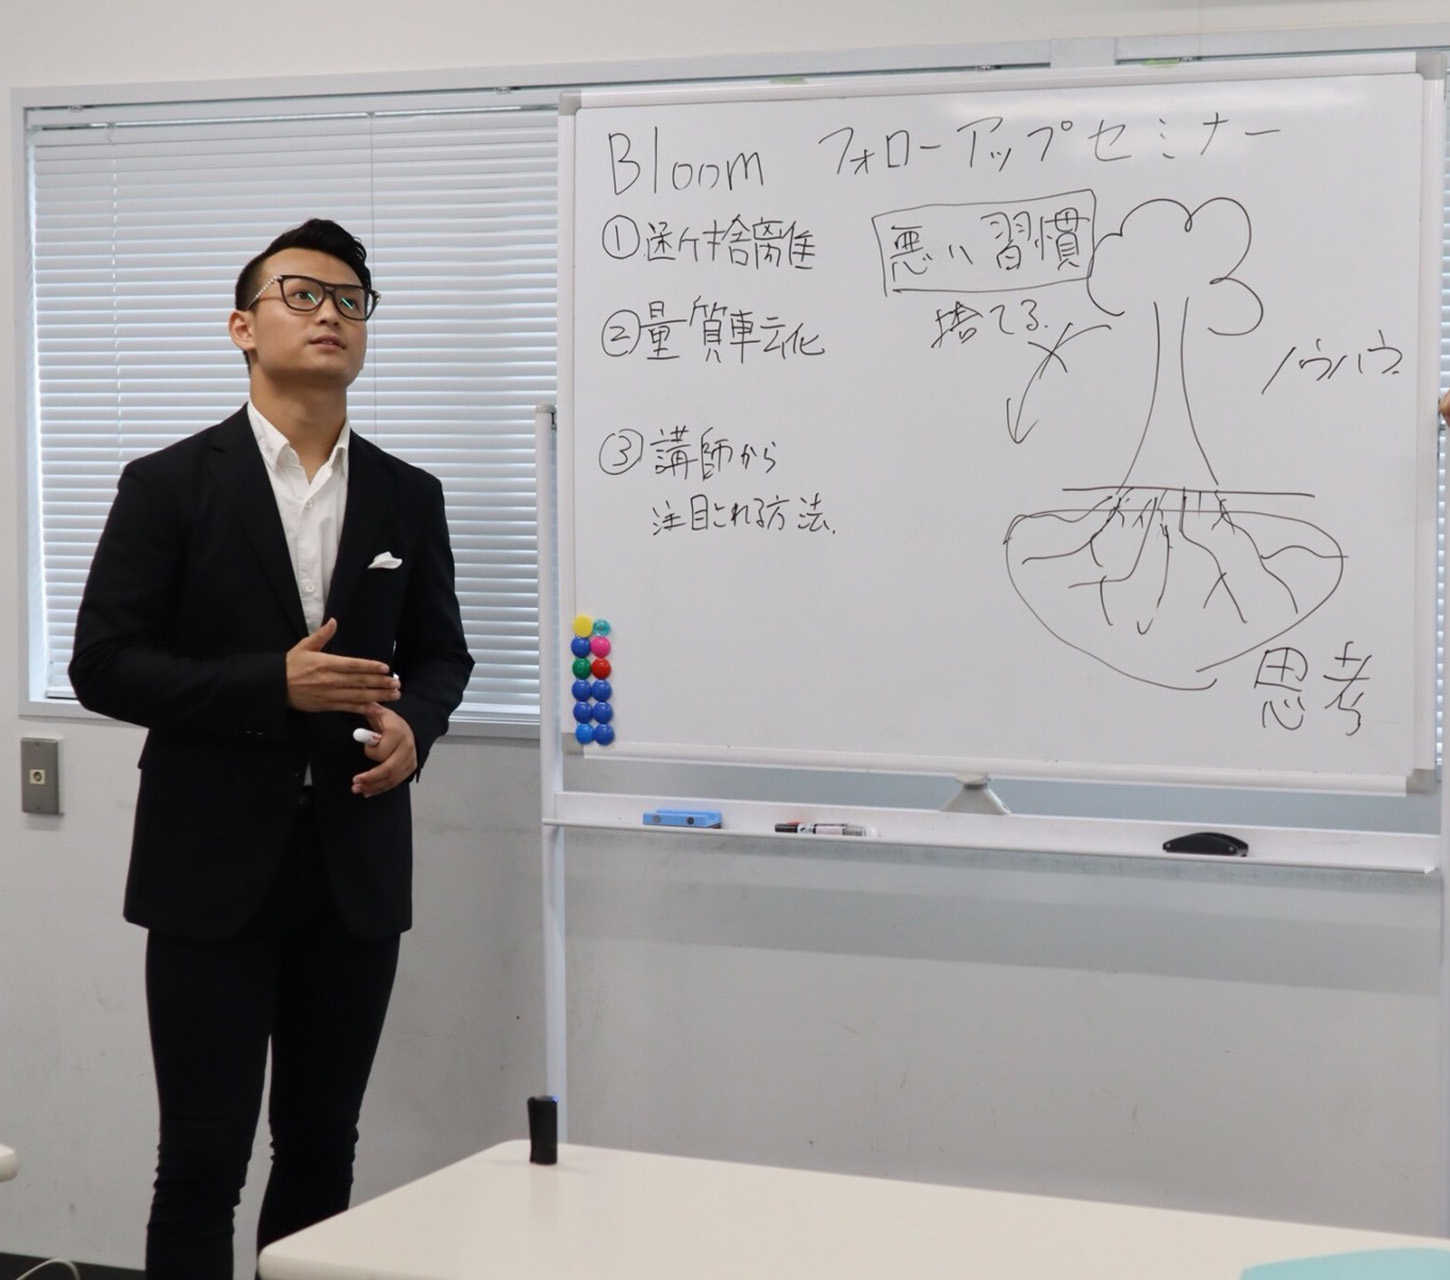 Bloom フォローアップセミナー
①迷ケ捨離
②量質転化
③講師から
注目される方法.
悪い習慣
捨てる.
ノウハウ
思考